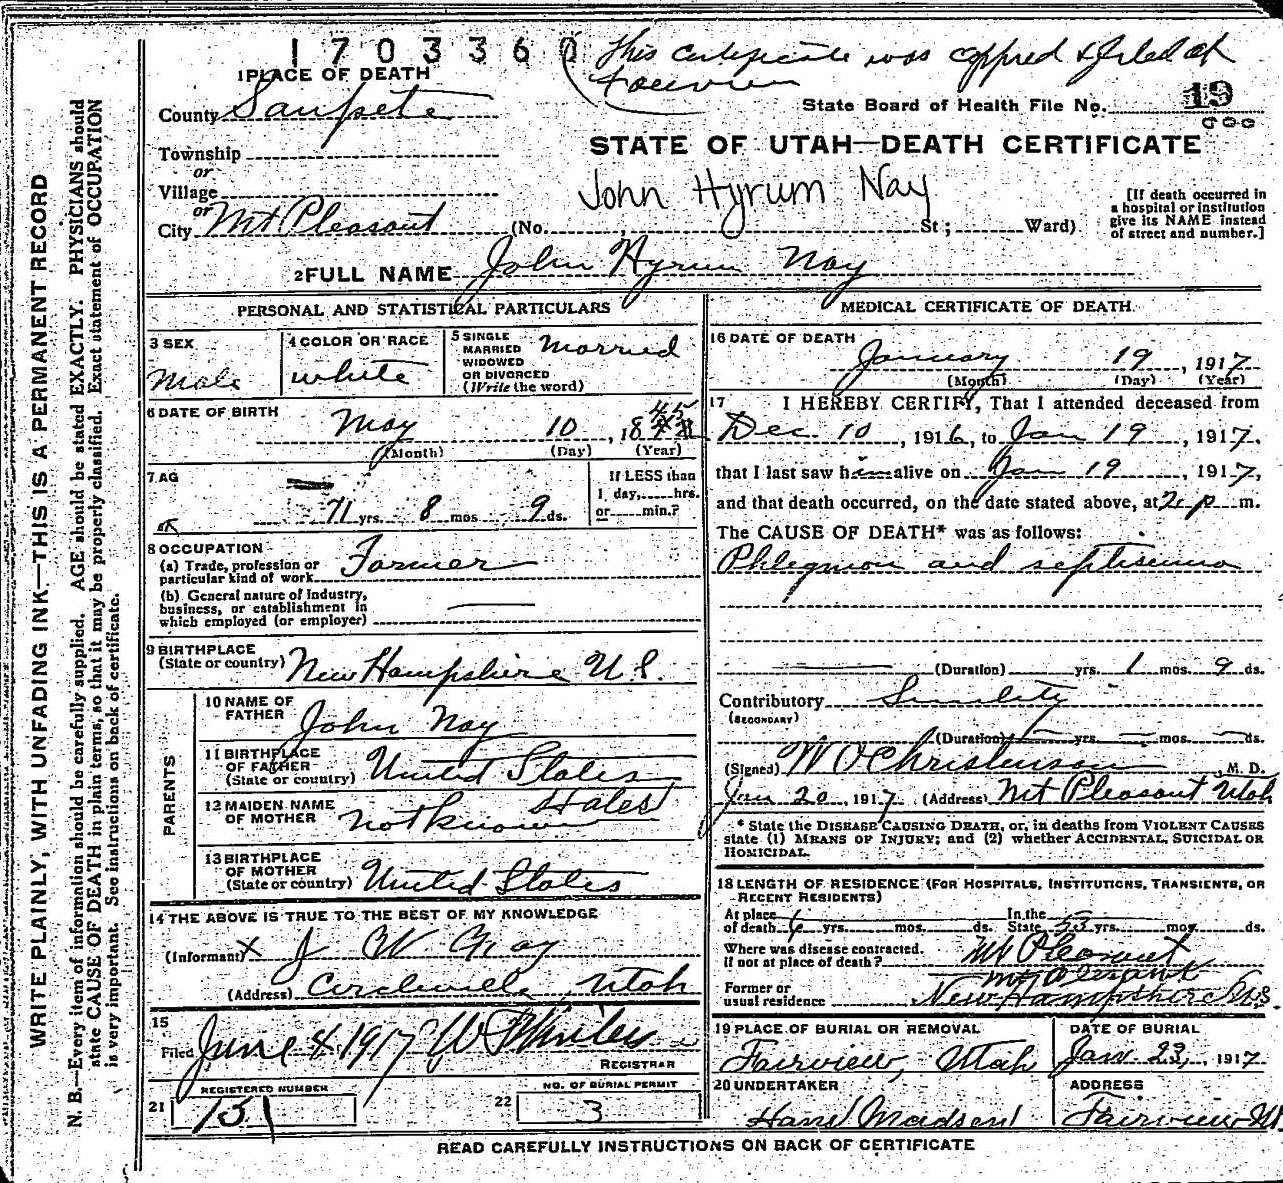 1703360
This certificate was copied & filed at
Fairview
1 PLACE OF DEATH
County Sanpete
State Board of Health File No. 19
900
Township
or
Village
or
City Mt Pleasant (No. St; Ward)
STATE OF UTAH—DEATH CERTIFICATE
John Hyrum Nay
[If death occurred in
a hospital or institution
give its NAME instead
of street and number.]
2 FULL NAME John Hyrum Nay
WRITE PLAINLY, WITH UNFADING INK—THIS IS A PERMANENT RECORD
N. B.—Every item of information should be carefully supplied. AGE should be stated EXACTLY. PHYSICIANS should
state CAUSE OF DEATH in plain terms, so that it may be properly classified. Exact statement of OCCUPATION
is very important. See instructions on back of certificate.
PERSONAL AND STATISTICAL PARTICULARS
3 SEX
Male
4 COLOR OR RACE
white
5 SINGLE
MARRIED
WIDOWED
OR DIVORCED
(Write the word)
Married
6 DATE OF BIRTH
May 10, 1845
(Month) (Day) (Year)
7 AG
71 yrs. 8 mos 9 ds.
If LESS than
1 day, hrs.
or min.?
8 OCCUPATION
(a) Trade, profession or
particular kind of work Farmer
(b) General nature of industry,
business, or establishment in
which employed (or employer)
9 BIRTHPLACE
(State or country) New Hampshire U.S.
PARENTS
10 NAME OF
FATHER John Nay
11 BIRTHPLACE
OF FATHER
(State or country) United States
12 MAIDEN NAME
OF MOTHER not known Hales
13 BIRTHPLACE
OF MOTHER
(State or country) United States
14 THE ABOVE IS TRUE TO THE BEST OF MY KNOWLEDGE
(Informant) X J W Gray
(Address) Circleville, Utah
15
Filed June 4 1917
REGISTRAR
REGISTERED NUMBER
21 151
NO. OF BURIAL PERMIT
22 3
MEDICAL CERTIFICATE OF DEATH
16 DATE OF DEATH
January 19, 1917
(Month) (Day) (Year)
17 I HEREBY CERTIFY, That I attended deceased from
Dec. 10, 1916, to Jan 19, 1917,
that I last saw him alive on Jan 19, 1917,
and that death occurred, on the date stated above, at 2 p m.
The CAUSE OF DEATH* was as follows:
Phlegmon and septisema
(Duration) yrs. 1 mos 9 ds.
Contributory Senility
(SECONDARY)
(Duration) yrs. mos. ds.
(Signed) W O Christenson M. D.
Jan 20, 1917 (Address) Mt Pleasant Utah
* State the DISEASE CAUSING DEATH, or, in deaths from VIOLENT CAUSES
state (1) MEANS OF INJURY; and (2) whether ACCIDENTAL, SUICIDAL OR
HOMICIDAL.
18 LENGTH OF RESIDENCE (FOR HOSPITALS, INSTITUTIONS, TRANSIENTS, OR
RECENT RESIDENTS)
At place
of death 6 yrs. mos. ds.
In the
State 53 yrs. mos. ds.
Where was disease contracted.
if not at place of death? Mt Pleasant
Mt Pleasant
Former or
usual residence New Hampshire U.S.
19 PLACE OF BURIAL OR REMOVAL
Fairview, Utah
DATE OF BURIAL
Jan. 23, 1917
20 UNDERTAKER
Hans Madsen
ADDRESS
Fairview U.
READ CAREFULLY INSTRUCTIONS ON BACK OF CERTIFICATE